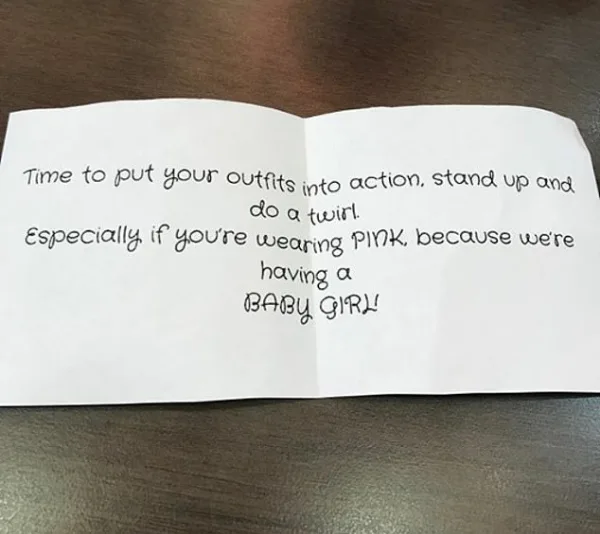 Time to put your outfits into action, stand up and
do a twirl.
Especially if you're wearing PINK, because we're
having a
BABY GIRL!